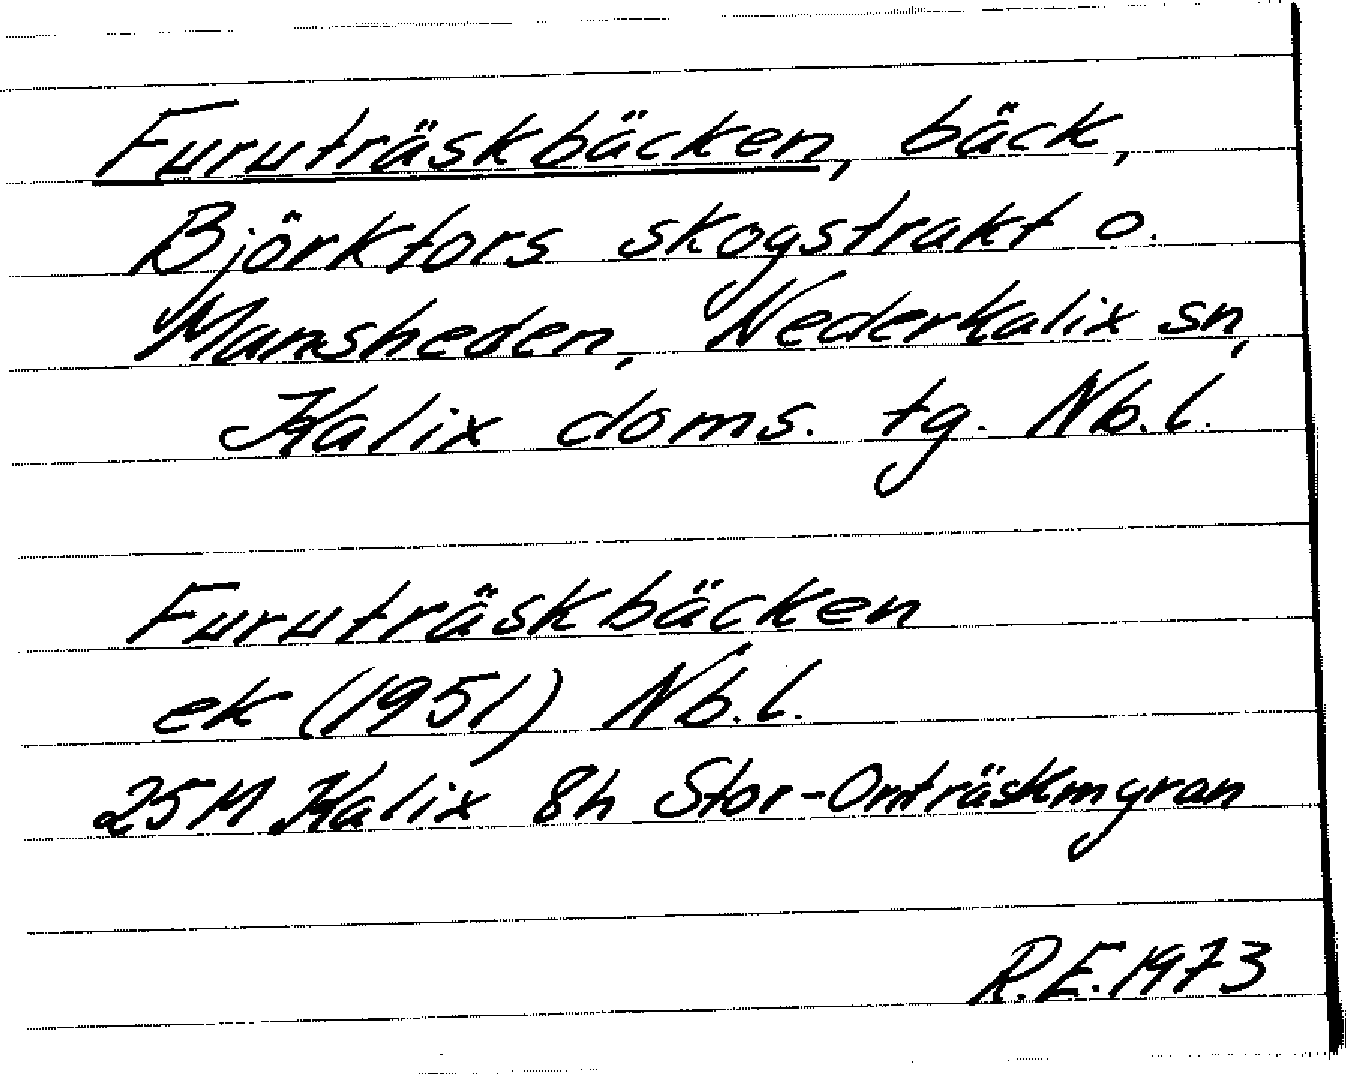 Furuträskbäcken, bäck,
Björkfors skogstrakt o.
Mansheden, Nederkalix sn,
Kalix doms. tg. Nb.l.
Furuträskbäcken
ek (1951) Nb.l.
25M Kalix 8h Stor-Onträskmyran
R.E.1973